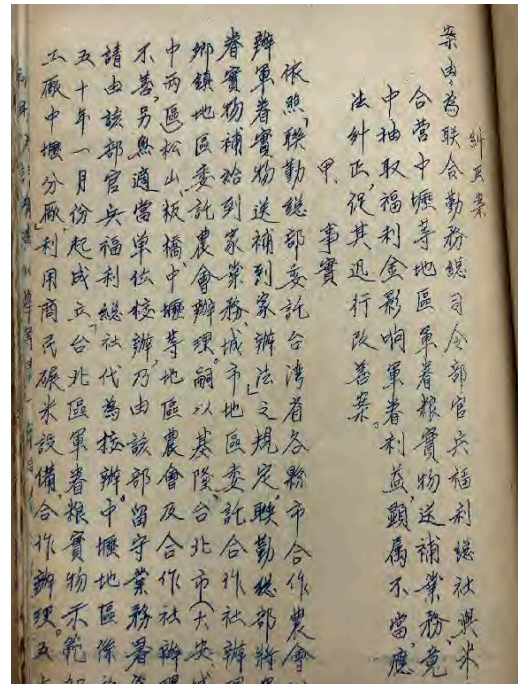 糾正案
案由：為聯合勤務總司令部官兵福利總社與米
合营中壢等地區軍眷粮實物送補業務，竟
中抽取福利金影响軍眷利益，顯属不當，應
法糾正，促其迅行改善案。
甲、事實
依照「聯勤總部委託台湾省各縣市合作農會
辦軍眷實物送補到家辦法」之規定，聯勤總部將
眷實物補給到家業務，城市地區委託合作社辦
鄉鎮地區委託農會辦理。嗣以基隆、台北市（大安、城
中兩區）松山、板橋、中壢等地區農會及合作社辦理
不善，另無適當單位接辦，乃由該部留守業務署
請由該部官兵福利總社代為接辦。中壢地區係
五十年一月份起成立「台北區軍眷粮實物示範
工廠中壢分廠」利用商民碾米設備合作辦理。五